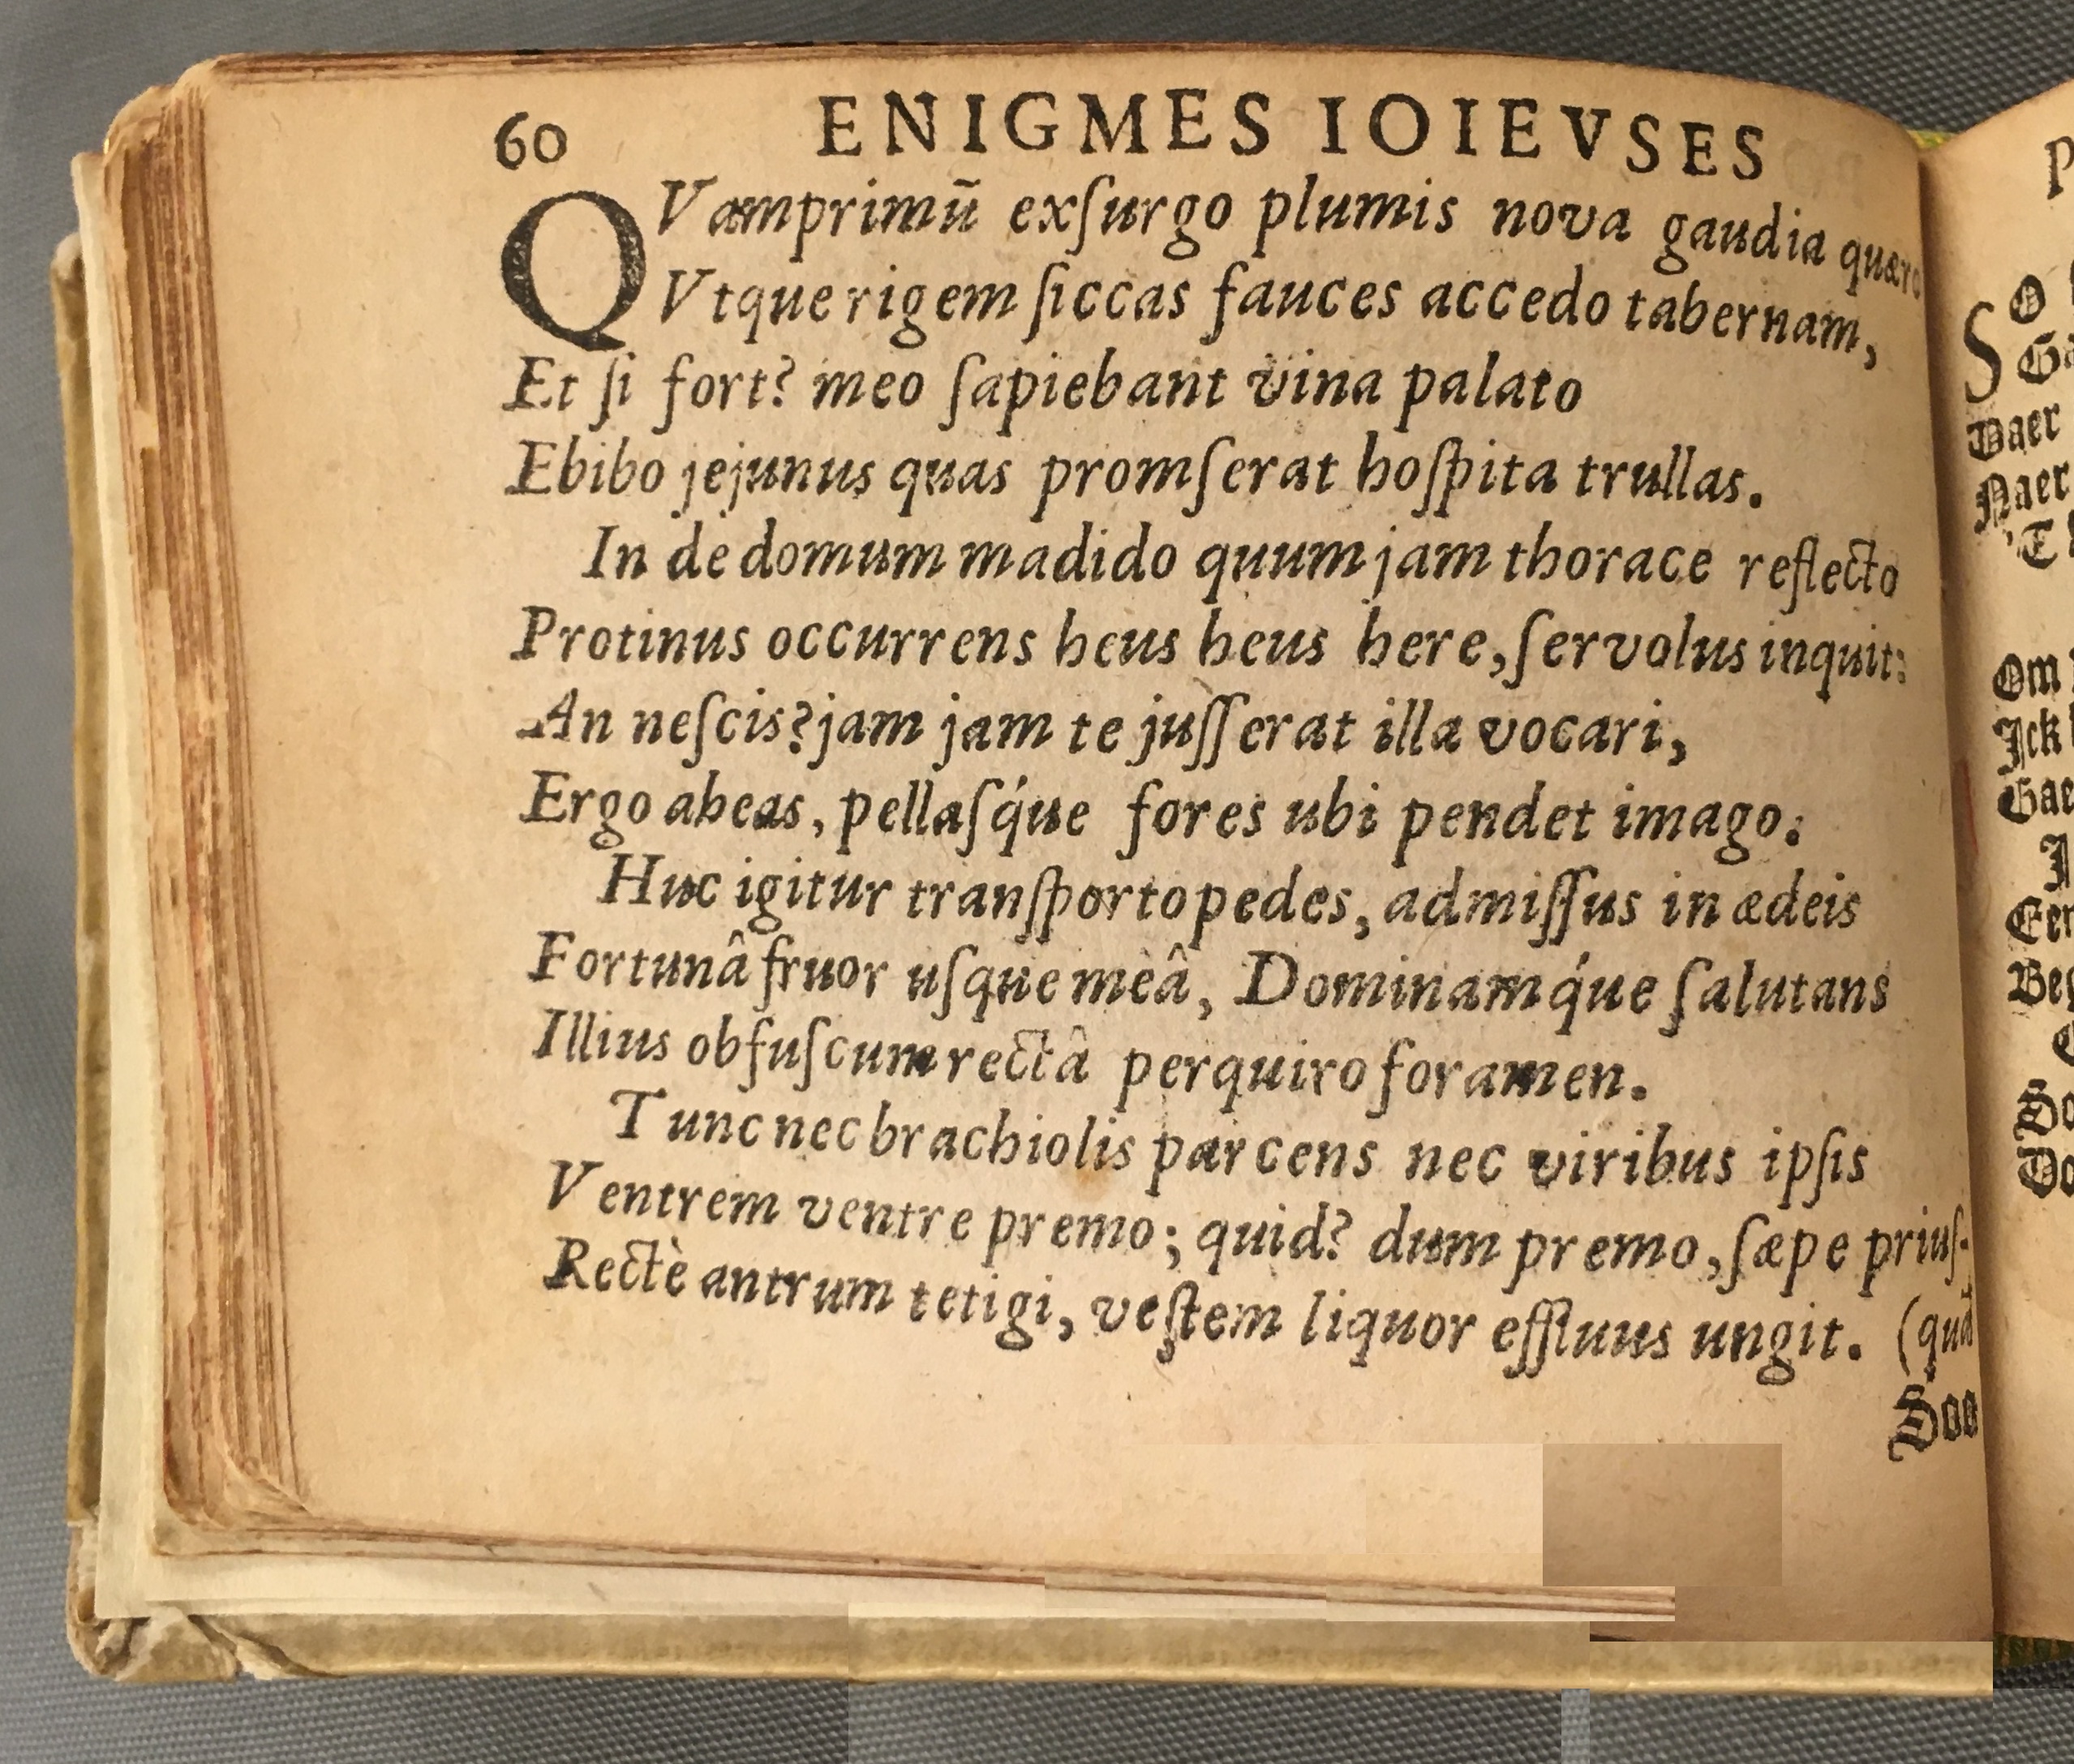 60 ENIGMES IOIEVSES
QVamprimũ exſurgo plumis nova gaudia quæro
Vtque rigem ſiccas fauces accedo tabernam,
Et ſi fort? meo ſapiebant vina palato
Ebibo jejunus quas promſerat hoſpita trullas.
In de domum madido quum jam thorace reflecto
Protinus occurrens heus heus here, ſervolus inquit:
An neſcis? jam jam te juſſerat illa vocari,
Ergo abeas, pellaſq́ue fores ubi pendet imago.
Huc igitur tranſporto pedes, admiſſus in ædeis
Fortunâ fruor uſque meâ, Dominamq́ue ſalutans
Illius obfuſcum rectâ perquiro foramen.
Tunc nec brachiolis parcens nec viribus ipſis
Ventrem ventre premo; quid? dum premo, ſæpe priuſ-
Rectè antrum tetigi, veſtem liquor effluus ungit. (quā
Soo
Daer
Naer
Om
Ick